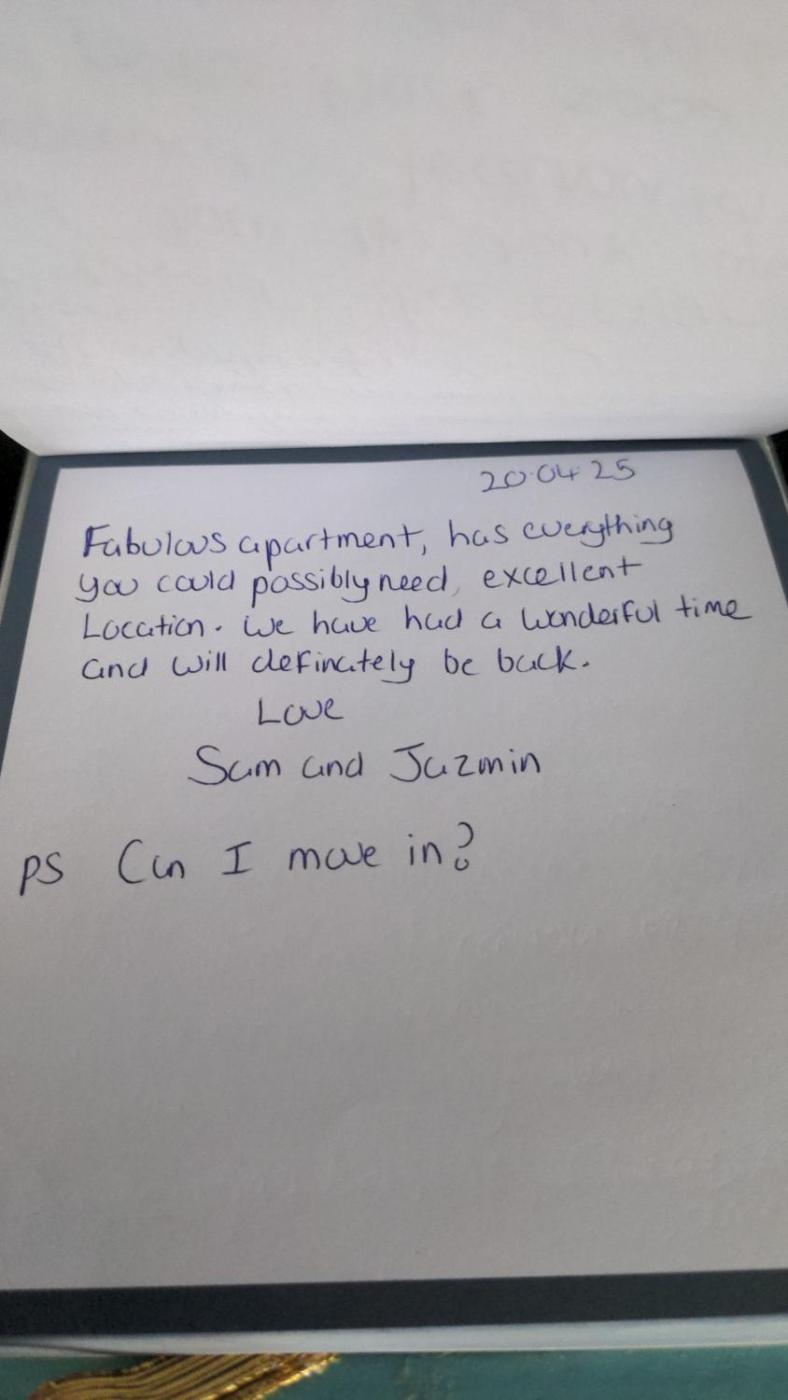 20.04.25
Fabulous apartment, has everything
you could possibly need, excellent
Location. We have had a wonderful time
and will definately be back.
Love
Sam and Jazmin
PS Can I move in?